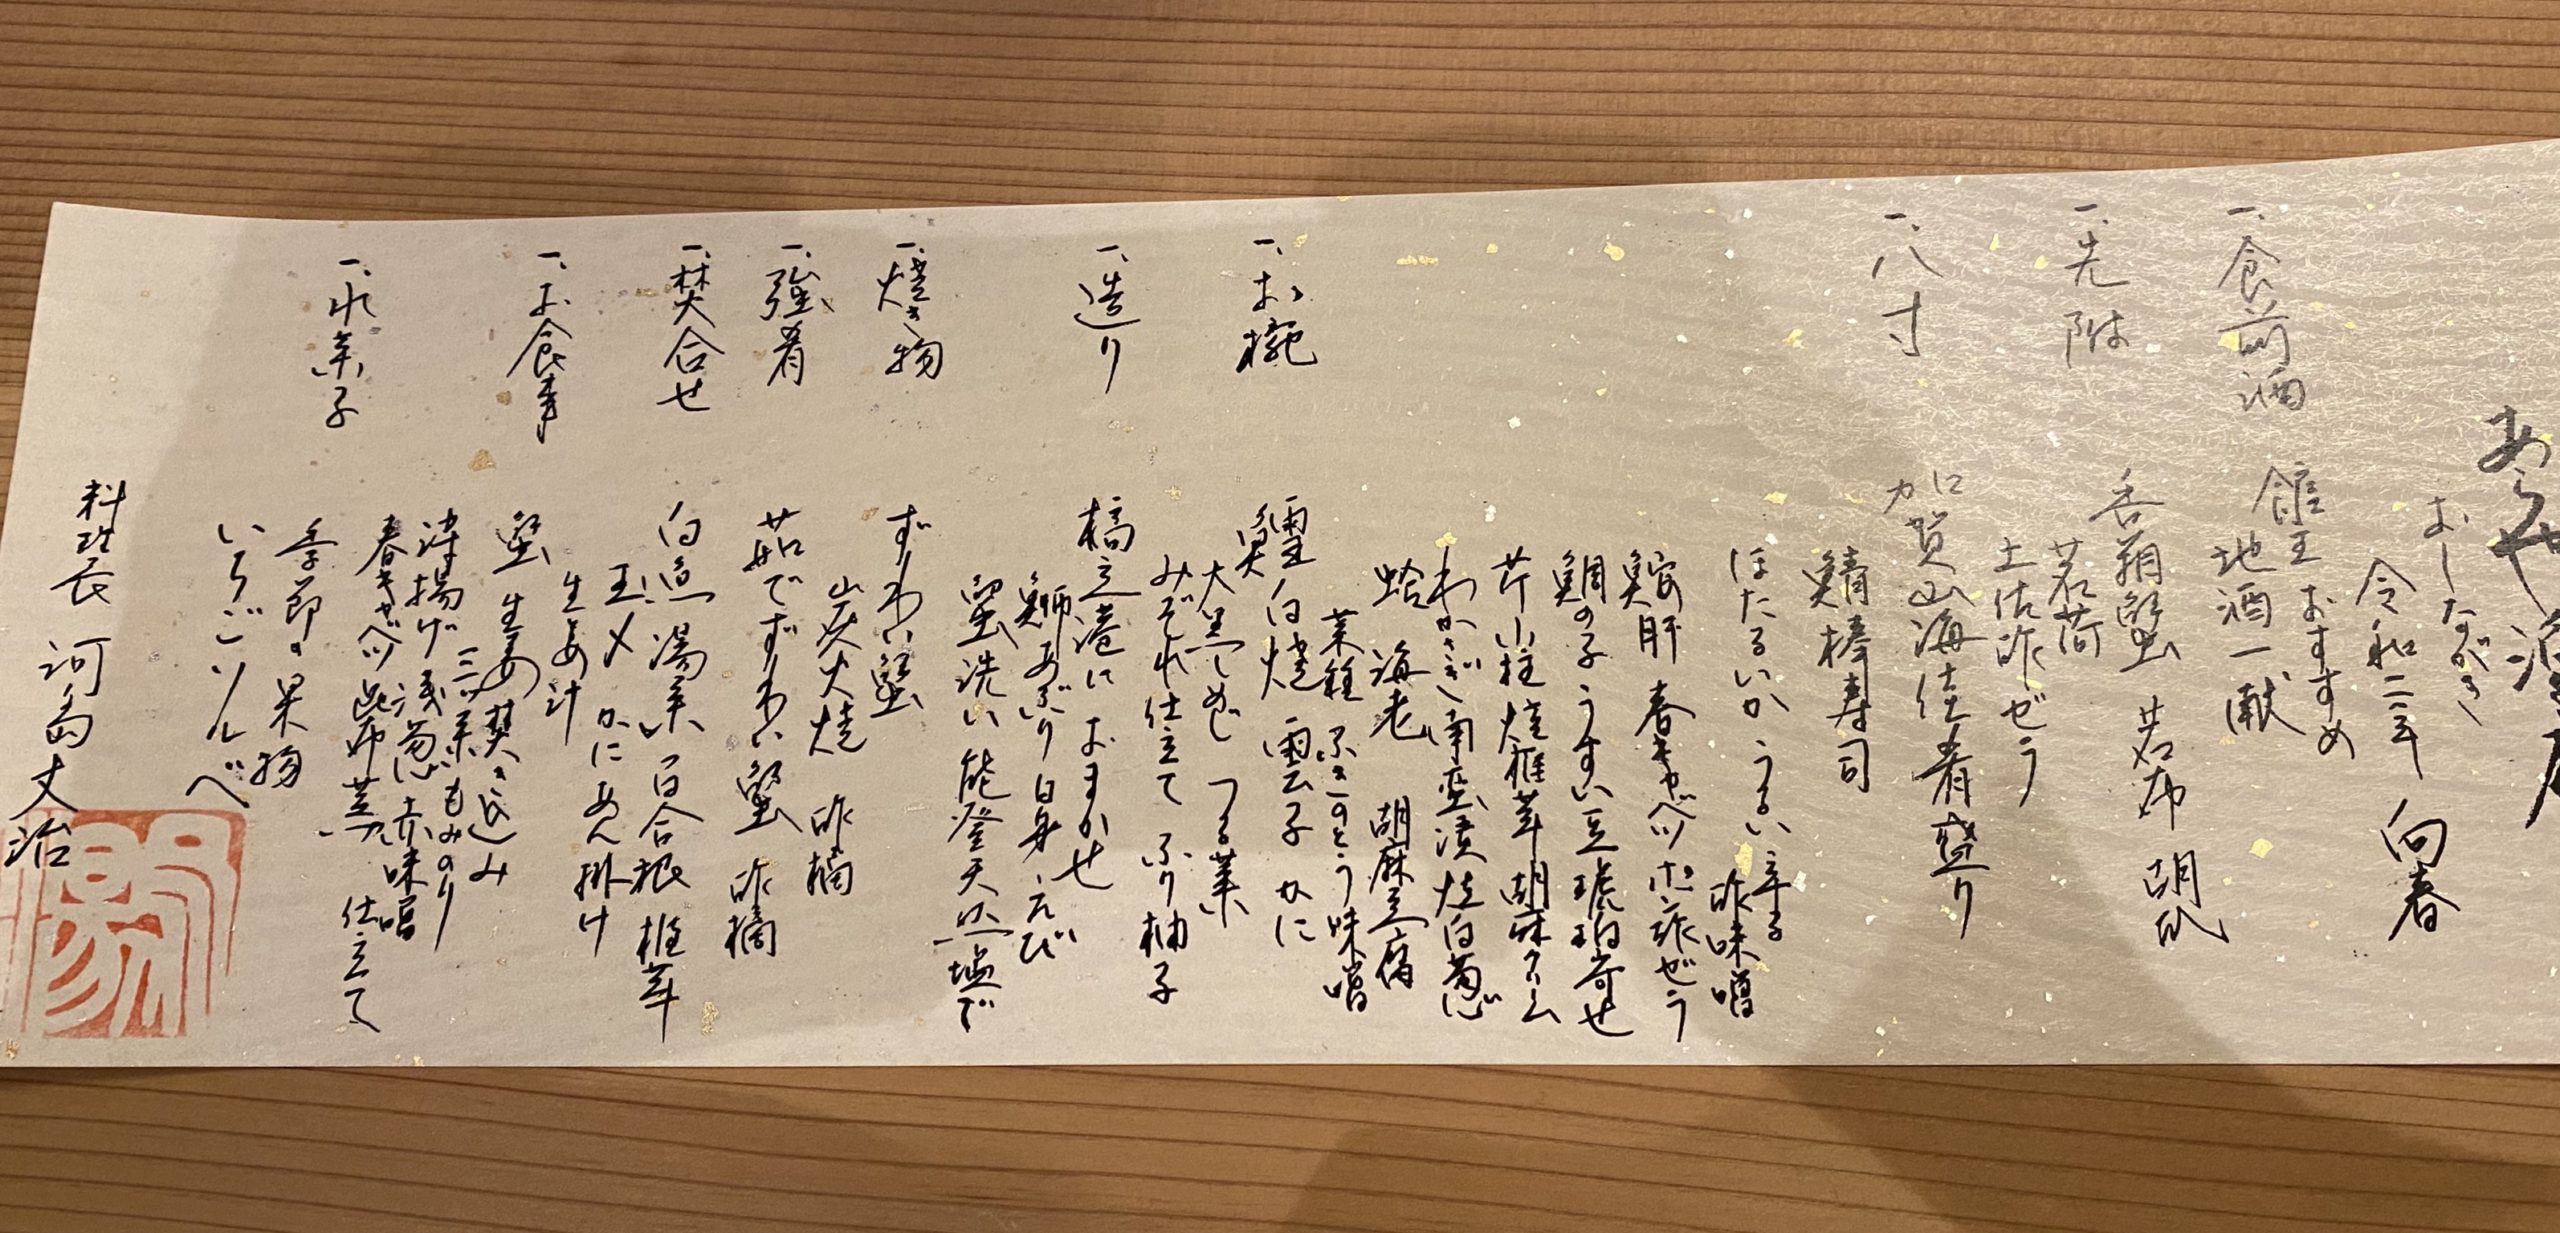 あらや滔々庵
おしながき
令和二年 向春
一、食前酒
館主おすすめ
地酒一献
一、先附
香箱蟹 若布 胡瓜
茗荷
土佐酢ぜり
一、八寸
加賀山海佳肴盛り
鯖棒寿司
ほたるいか うるい 辛子
酢味噌
鮟肝 春キャベツ ポン酢ぜり
鯛の子 うすい豆 琥珀寄せ
芹 小柱 焼椎茸 胡麻クリーム
わかさぎ南蛮漬 焼白葱
蛤 海老 胡麻豆腐
菜種 ふきのとう味噌
一、お椀
鱈白焼 雲子 かに
大黒しめじ つる菜
みぞれ仕立て ふり柚子
一、造り
橋立港におまかせ
鰤あぶり 白身 えび
蟹洗い 能登天然塩で
一、焼き物
ずわい蟹
炭火焼 酢橘
一、強肴
茹でずわい蟹 酢橘
一、焚合せ
白魚 湯葉 百合根 椎茸
玉〆 かにあん掛け
生姜汁
一、お食事
蟹 生姜 焚き込み
三ツ葉 もみのり
浅葱 赤味噌
春キャベツ 昆布 仕立て
一、水菓子
季節の果物
いちごソルベ
料理長 河島丈治